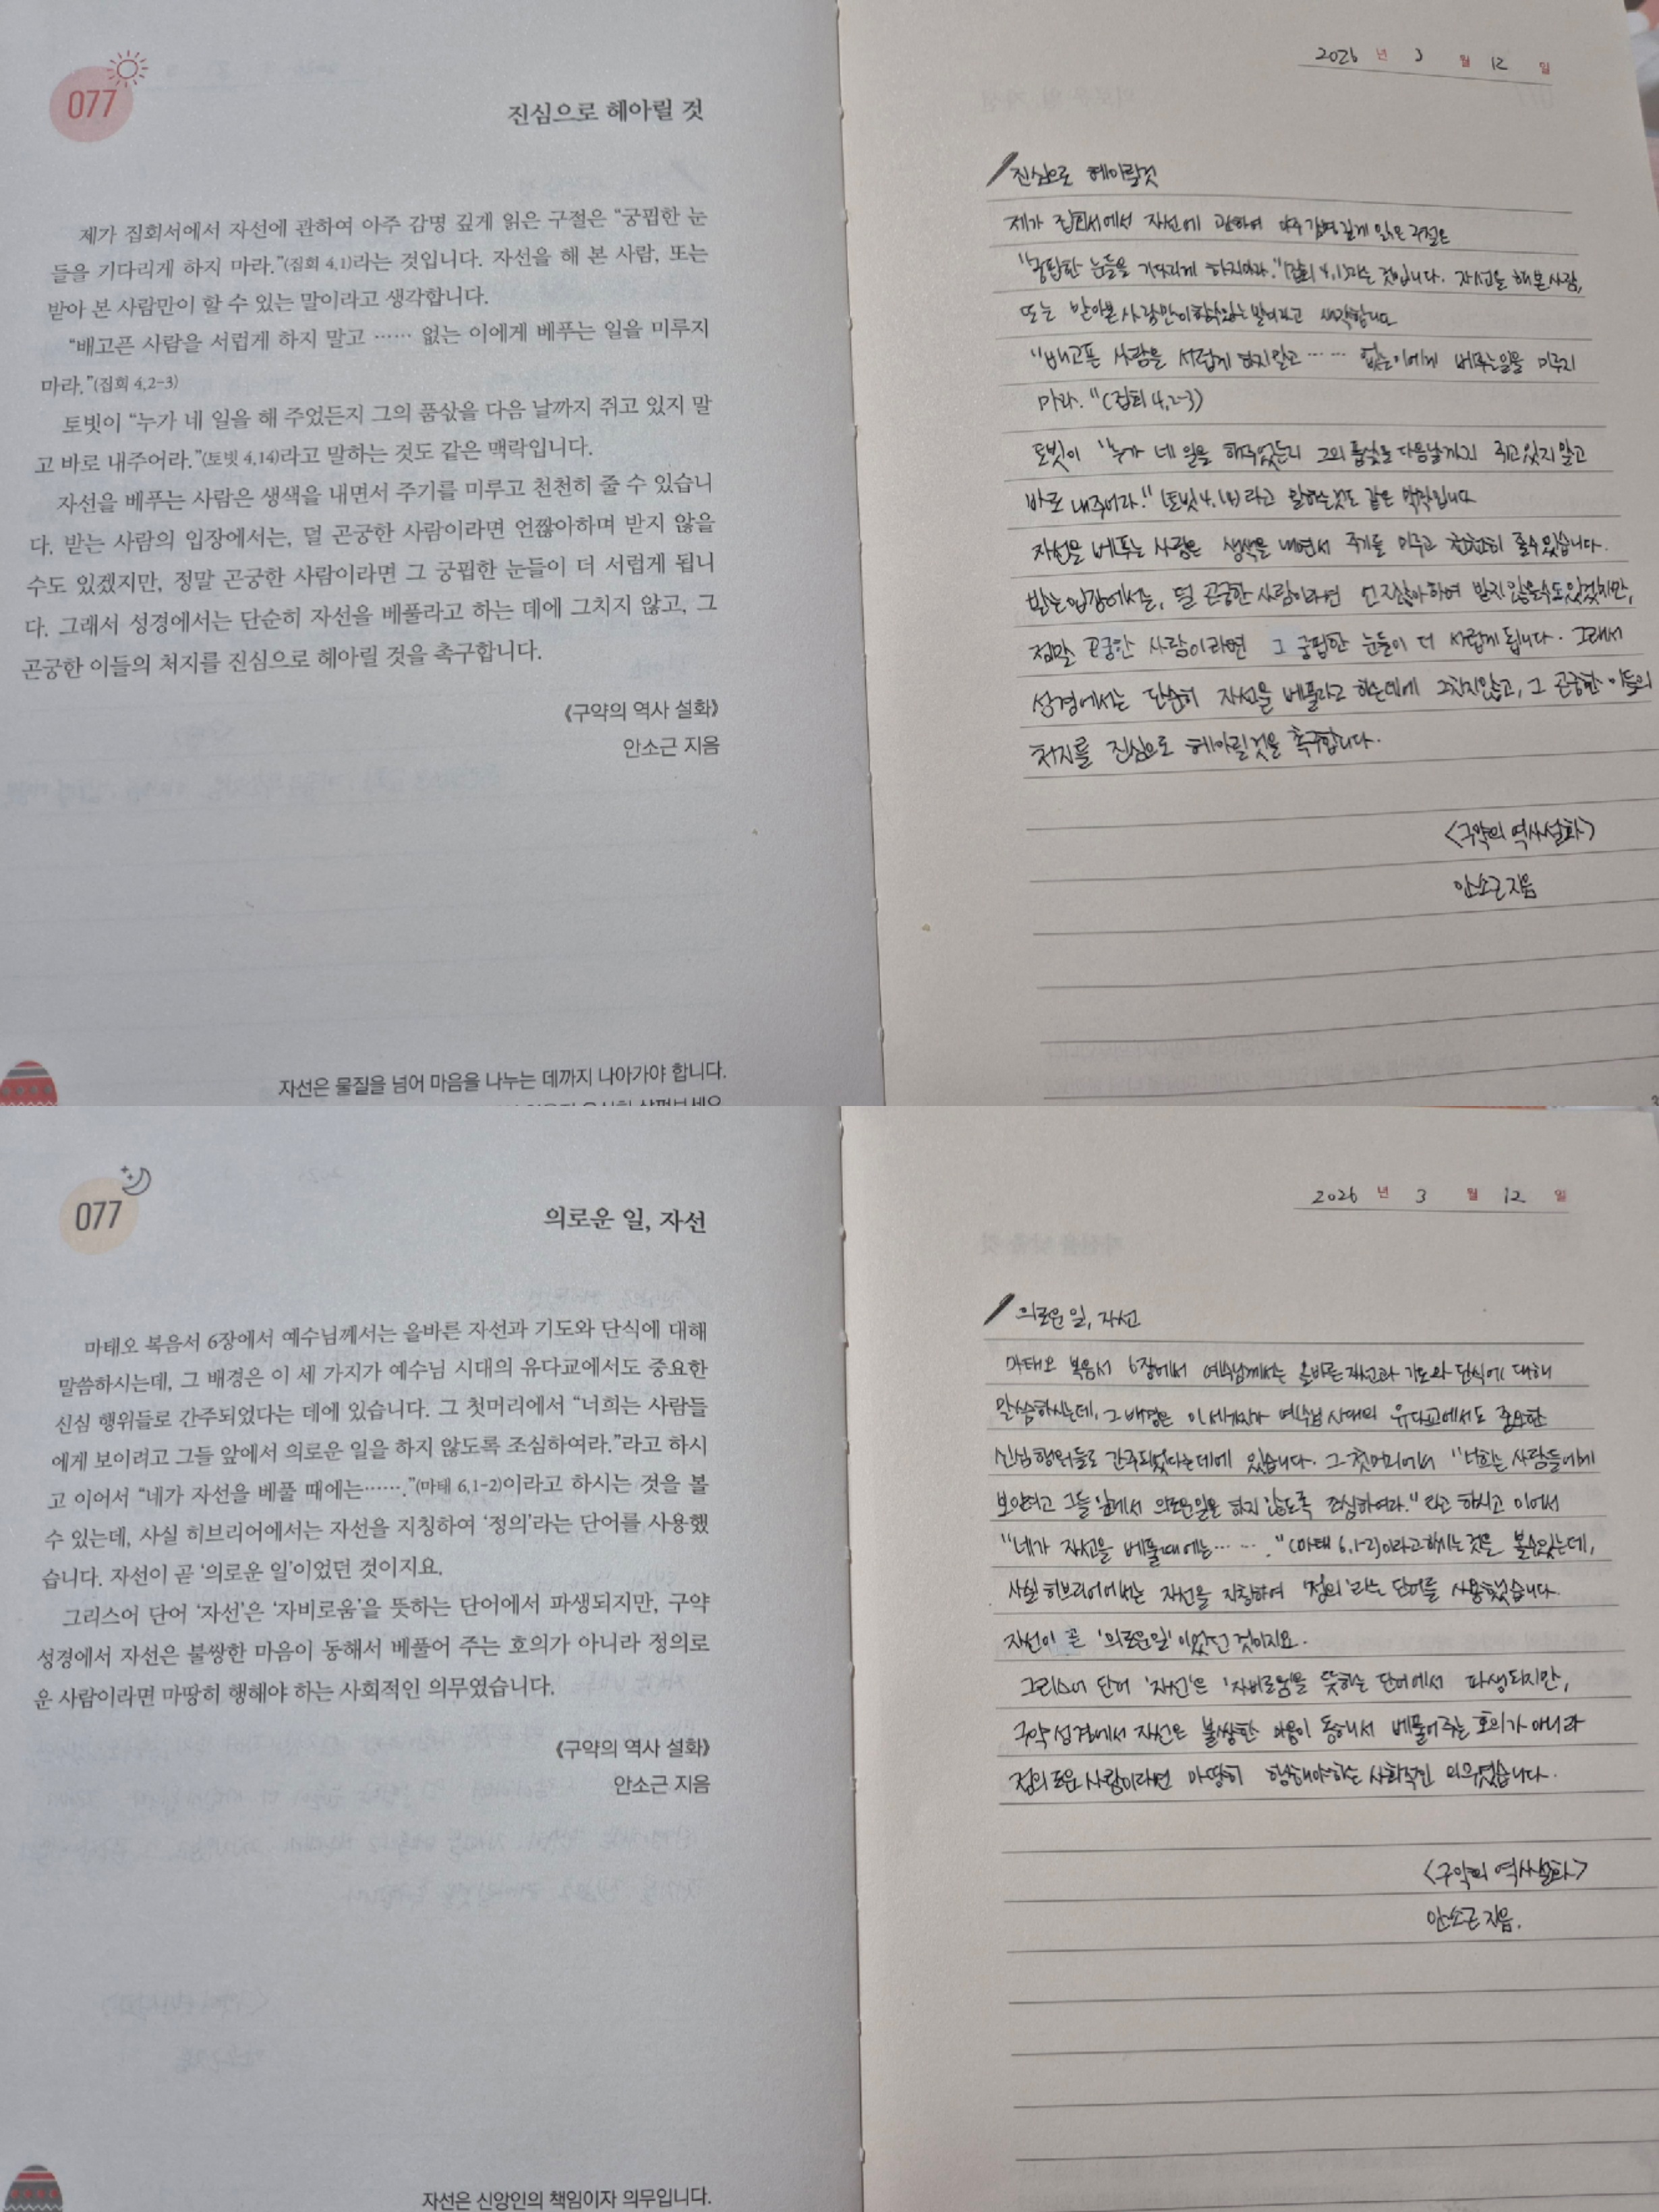 077
진심으로 헤아릴 것
제가 집회서에서 자선에 관하여 아주 감명 깊게 읽은 구절은 “궁핍한 눈
들을 기다리게 하지 마라.”(집회 4,1)라는 것입니다. 자선을 해 본 사람, 또는
받아 본 사람만이 할 수 있는 말이라고 생각합니다.
“배고픈 사람을 서럽게 하지 말고 …… 없는 이에게 베푸는 일을 미루지
마라.”(집회 4,2-3)
토빗이 “누가 네 일을 해 주었든지 그의 품삯을 다음 날까지 쥐고 있지 말
고 바로 내주어라.”(토빗 4,14)라고 말하는 것도 같은 맥락입니다.
자선을 베푸는 사람은 생색을 내면서 주기를 미루고 천천히 줄 수 있습니
다. 받는 사람의 입장에서는, 덜 곤궁한 사람이라면 언짢아하며 받지 않을
수도 있겠지만, 정말 곤궁한 사람이라면 그 궁핍한 눈들이 더 서럽게 됩니
다. 그래서 성경에서는 단순히 자선을 베풀라고 하는 데에 그치지 않고, 그
곤궁한 이들의 처지를 진심으로 헤아릴 것을 촉구합니다.
《구약의 역사 설화》
안소근 지음
자선은 물질을 넘어 마음을 나누는 데까지 나아가야 합니다.
2026 년 3 월 12 일
진심으로 헤아릴것
제가 집회서에서 자선에 관하여 아주 감명깊게 읽은 구절은
“궁핍한 눈들을 기다리게 하지마라.”(집회 4,1)라는 것입니다. 자선을 해본사람,
또는 받아본 사람만이할수있는말이라고 생각합니다
“배고픈 사람을 서럽게 하지말고 …… 없는이에게 베푸는일을 미루지
마라.”(집회 4,2-3)
토빗이 “누가 네 일을 해주었든지 그의 품삯을 다음날까지 쥐고있지말고
바로 내주어라.” (토빗4,14) 라고 말하는것도 같은 맥락입니다
자선을 베푸는 사람은 생색을 내면서 주기를 미루고 천천히 줄수있습니다.
받는입장에서는, 덜 곤궁한 사람이라면 언짢아하며 받지않을수도있겠지만,
정말 곤궁한 사람이라면 그 궁핍한 눈들이 더 서럽게 됩니다. 그래서
성경에서는 단순히 자선을 베풀라고 하는데에 그치지않고, 그 곤궁한 이들의
처지를 진심으로 헤아릴것을 촉구합니다.
<구약의 역사설화>
안소근 지음
077
의로운 일, 자선
마태오 복음서 6장에서 예수님께서는 올바른 자선과 기도와 단식에 대해
말씀하시는데, 그 배경은 이 세 가지가 예수님 시대의 유다교에서도 중요한
신심 행위들로 간주되었다는 데에 있습니다. 그 첫머리에서 “너희는 사람들
에게 보이려고 그들 앞에서 의로운 일을 하지 않도록 조심하여라.”라고 하시
고 이어서 “네가 자선을 베풀 때에는…….”(마태 6,1-2)이라고 하시는 것을 볼
수 있는데, 사실 히브리어에서는 자선을 지칭하여 ‘정의’라는 단어를 사용했
습니다. 자선이 곧 ‘의로운 일’이었던 것이지요.
그리스어 단어 ‘자선’은 ‘자비로움’을 뜻하는 단어에서 파생되지만, 구약
성경에서 자선은 불쌍한 마음이 동해서 베풀어 주는 호의가 아니라 정의로
운 사람이라면 마땅히 행해야 하는 사회적인 의무였습니다.
《구약의 역사 설화》
안소근 지음
자선은 신앙인의 책임이자 의무입니다.
2026 년 3 월 12 일
의로운 일, 자선
마태오 복음서 6장에서 예수님께서는 올바른 자선과 기도와 단식에 대해
말씀하시는데, 그 배경은 이세가지가 예수님 시대의 유다교에서도 중요한
신심행위들로 간주되었다는데에 있습니다. 그 첫머리에서 “너희는 사람들에게
보이려고 그들 앞에서 의로운일을 하지 않도록 조심하여라.” 라고 하시고 이어서
“네가 자선을 베풀때에는…….”(마태 6,1-2)이라고하시는것을 볼수있는데,
사실 히브리어에서는 자선을 지칭하여 '정의'라는 단어를 사용했습니다.
자선이 곧 '의로운일'이었던 것이지요.
그리스어 단어 '자선'은 '자비로움'을 뜻하는 단어에서 파생되지만,
구약성경에서 자선은 불쌍한 마음이 동해서 베풀어주는 호의가 아니라
정의로운 사람이라면 마땅히 행해야하는 사회적인 의무였습니다.
<구약의 역사설화>
안소근 지음.